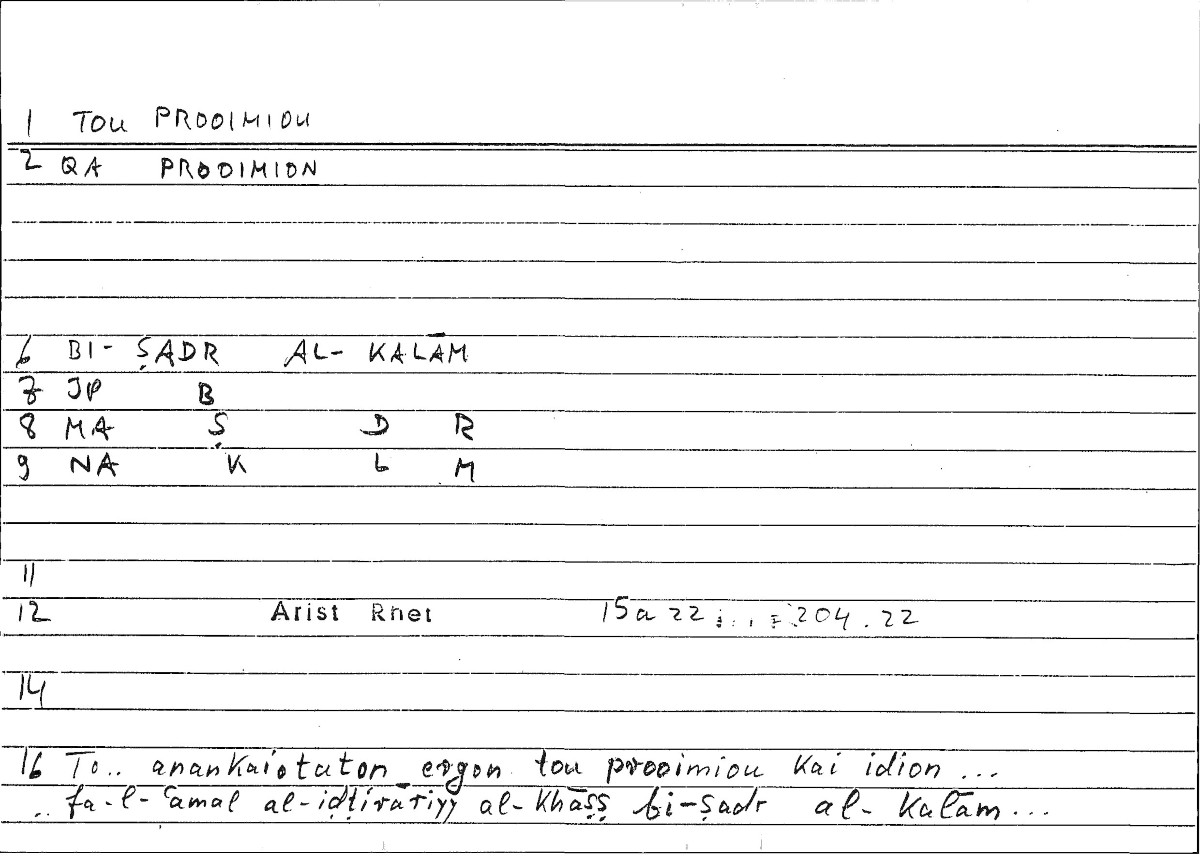 1 TOU PROOIMIOU
2 QA PROOIMION
6 BI- ṢADR AL- KALĀM
7 JP B
8 MA Ṣ D R
9 NA K L M
11
12 Arist Rhet 15a22 204.22
14
16 To.. anankaiotaton ergon tou prooimiou kai idion ...
.. fa-l-ʿamal al-iḍṭirāriyy al-khāṣṣ bi-ṣadr al-kalām...